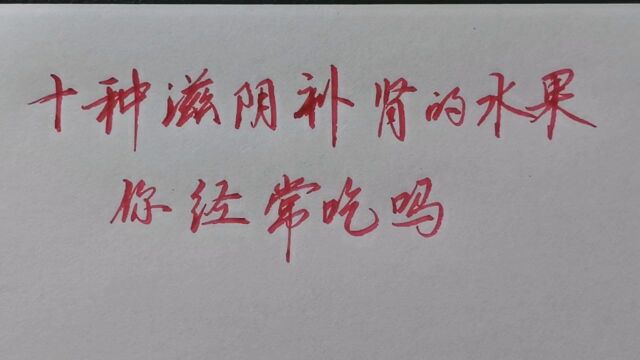 十种滋阴补肾的水果
你经常吃吗